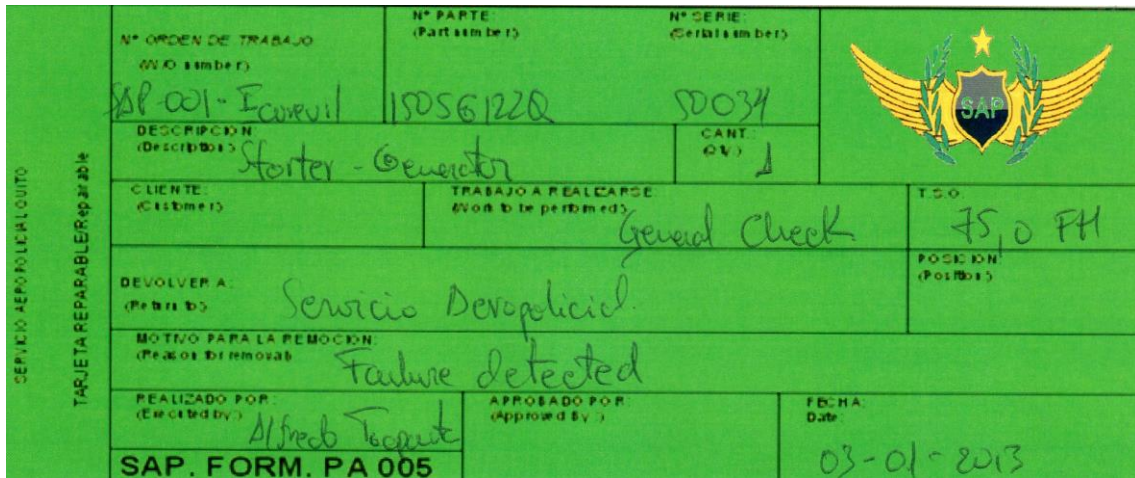 SERVICIO AEROPOLICIAL QUITO
TARJETA REPARABLE/Reparable
Nº ORDEN DE TRABAJO
(W/O number)
SAP-001-Ecureuil
Nº PARTE:
(Part number)
150SG122Q
Nº SERIE:
(Serial number)
50034
SAP
DESCRIPCION:
(Description)
Starter - Generator
CANT.:
(QTY.)
1
CLIENTE:
(Customer)
TRABAJO A REALIZARSE
(Work to be performed)
General Check
T.S.O.
75,0 FH
DEVOLVER A:
(Return to)
Servicio Aeropolicial.
POSICION:
(Position)
MOTIVO PARA LA REMOCION:
(Reason for removal)
Failure detected
REALIZADO POR:
(Executed by:)
Alfredo
APROBADO POR
(Approved By:)
FECHA:
Date:
03-01-2013
SAP. FORM. PA 005